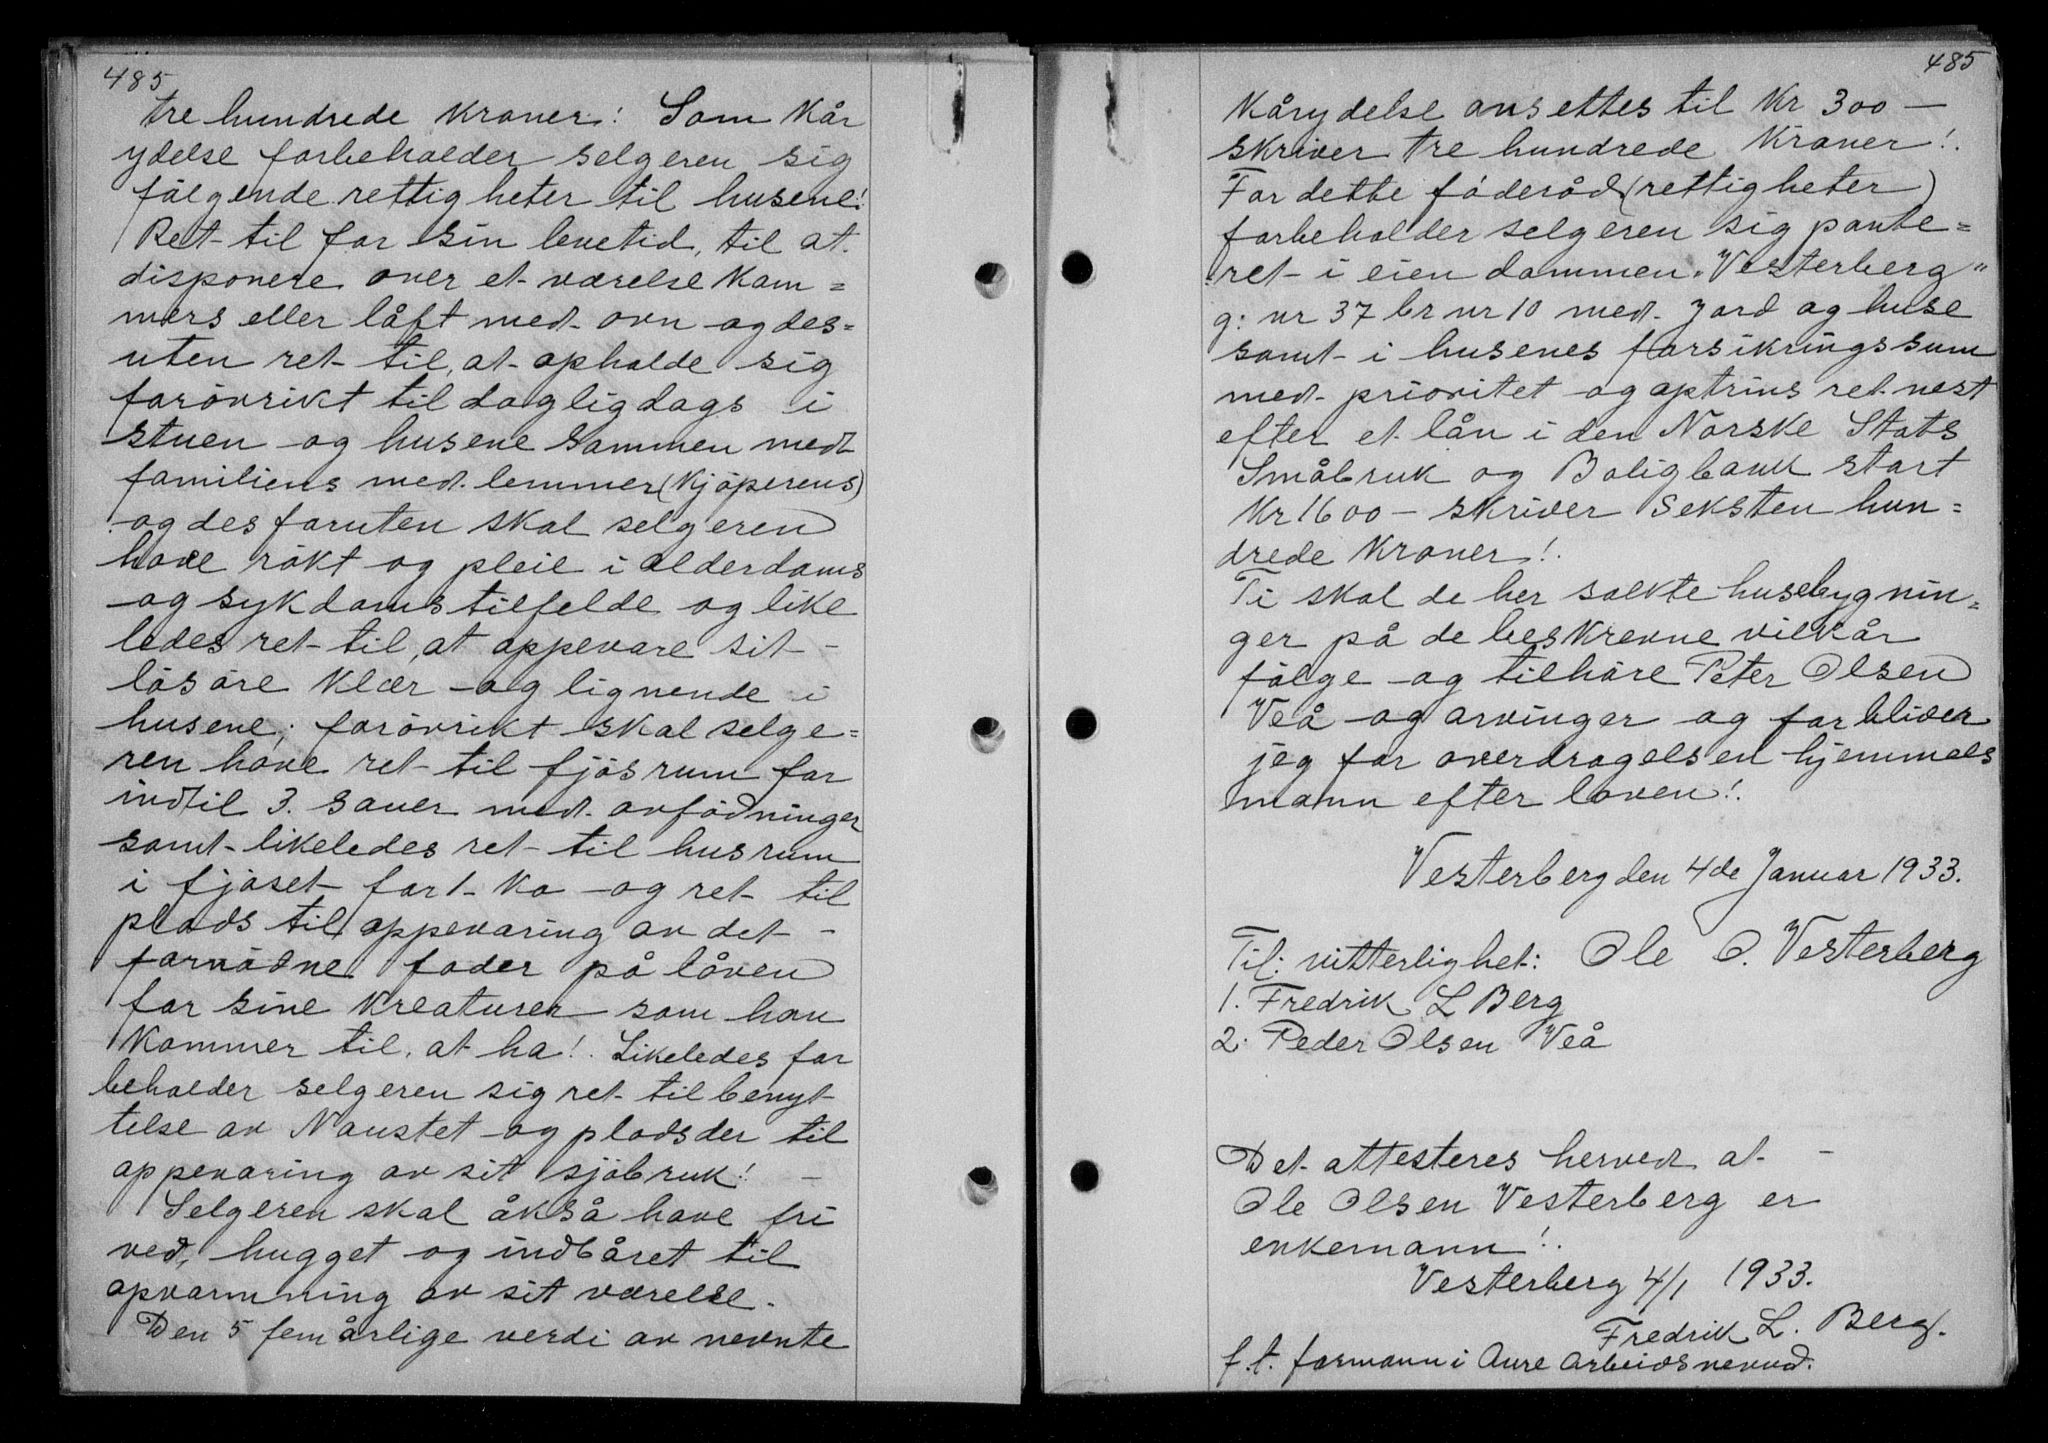 485
tre hundrede kroner! Som kår
ydelse forbeholder selgeren sig
følgende rettigheter til husene!
Ret til for sin levetid, til at
disponere over et værelse kam=
mers eller låft med ovn og des=
uten ret til, at opholde sig
forøvrikt til dagligdags i
stuen og husene sammen med
familiens med.lemmer (kjøperens)
og desforuten skal selgeren
have røkt og pleie i alderdoms
og sykdoms tilfelde og like
ledes ret til, at oppevare sit -
løsøre klær og lignende i
husene; forøvrikt skal selge=
ren have ret til fjøsrum for
indtil 3. sauer med avfødninger
samt likeledes ret til husrum
i fjøset for 1 ko og ret til
plads til oppevaring av det -
fornødne foder på låven
for sine kreaturer som han
kommer til, at ha!. Likeledes for
beholder selgeren sig ret til benyt
telse av Naustet og plads der til
oppevaring av sit sjøbruk! -
Selgeren skal åkså have fri
ved, hugget og indbåret til
opvarmning av sit værelse.
Den 5 fem årlige verdi av nevnte
485
Kårydelse ansettes til Kr 300 —
skriver tre hundrede Kroner!.
For dette føderåd (rettigheter)
forbeholder selgeren sig pante=
ret i eiendommen "Vesterberg"
g: nr 37 br nr 10 med jord og huse
samt i husenes forsikringssum
med prioritet og optrins ret nest
efter et lån i den Norske Stats
Småbruk og Boligbank stort
Kr 1600 — skriver seksten hun=
drede Kroner!.
Ti skal de her solkte husebygnin=
ger på de beskrevne vilkår
følge og tilhøre Peter Olsen
Veå og arvinger og forbliver
jeg for overdragelsen hjemmels
mann efter loven!.
Vesterberg den 4de Januar 1933.
Til: vitterlighet: Ole O. Vesterberg
1. Fredrik L Berg
2. Peder Olsen Veå
Det attesteres herved at -
Ole Olsen Vesterberg er
enkemann!.
Vesterberg 4/1 1933.
Fredrik L. Berg.
f.t. formann i Aure Arbeidsnevnd.